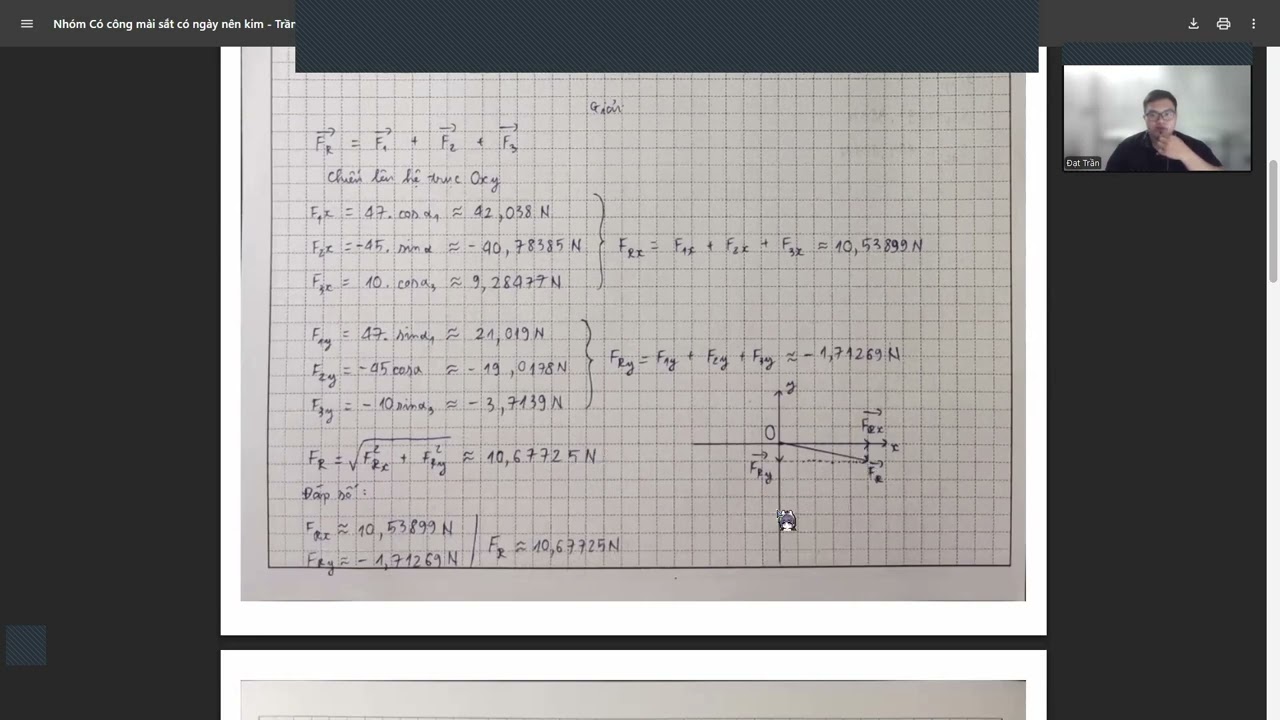 Nhóm Có công mài sắt có ngày nên kim - Trần
Đạt Trần
Giải
F_R = F_1 + F_2 + F_3
Chiếu lên hệ trục Oxy
F_1x = 47. cosα_1 ≈ 42,038 N
F_2x = -45. sinα ≈ -40,78385 N
F_3x = 10. cosα_3 ≈ 9,28477 N
F_Rx = F_1x + F_2x + F_3x ≈ 10,53899 N
F_1y = 47. sinα_1 ≈ 21,019 N
F_2y = -45cosα ≈ -19,0178 N
F_3y = -10sinα_3 ≈ -3,7139 N
F_Ry = F_1y + F_2y + F_3y ≈ -1,71269 N
y
O
F_Rx
x
F_Ry
F_R
F_R = √(F_Rx^2 + F_Ry^2) ≈ 10,67725 N
Đáp số:
F_Rx ≈ 10,53899 N
F_Ry ≈ -1,71269 N
F_R ≈ 10,67725 N